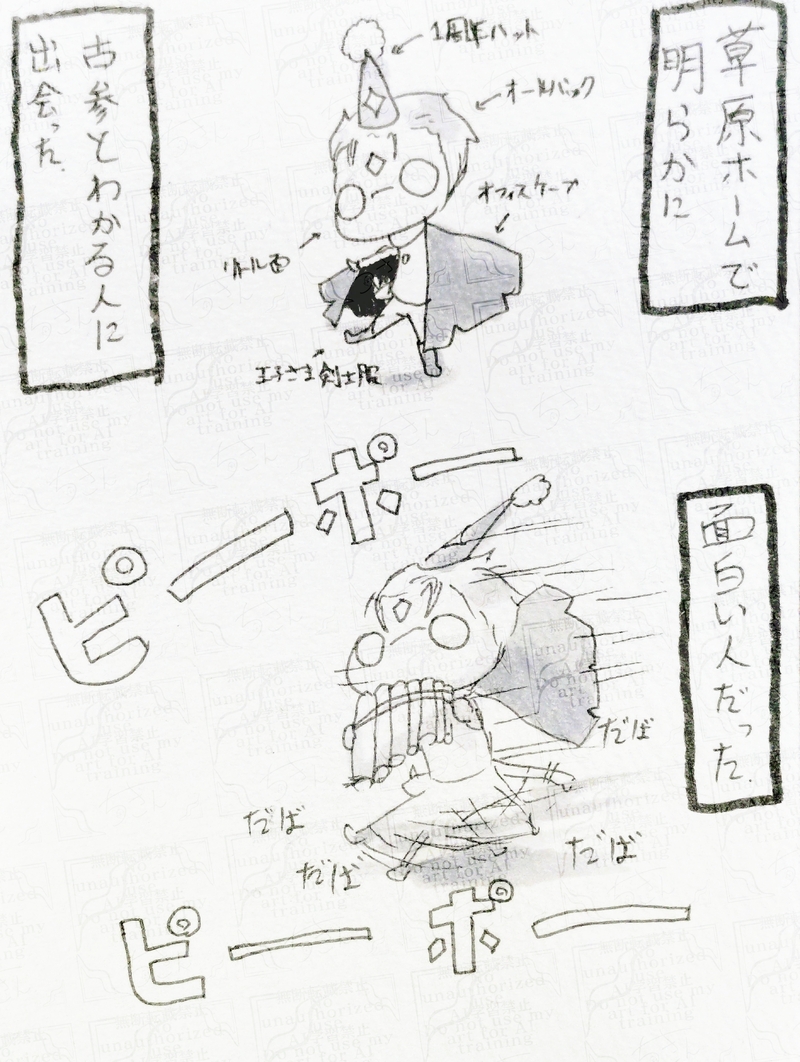 草原ホームで
明らかに
1周年ハット
オールバック
オフィスケープ
リトル面
王子さま剣士服
古参とわかる人に
出会った.
ピーポー
面白い人だった.
だば
だば
だば
だば
ピーポー
無断転載禁止
No
unauthorized
use my
AI学習禁止
Do not use my
art for AI
training